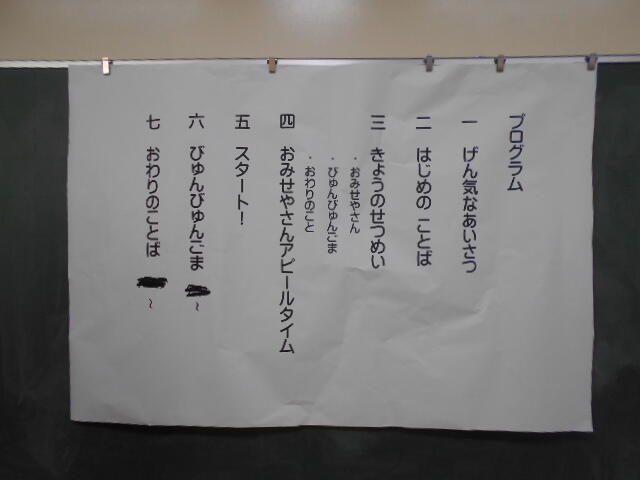 プログラム
一 げん気なあいさつ
二 はじめの ことば
三 きょうのせつめい
・おみせやさん
・びゅんびゅんごま
・おわりのこと
四 おみせやさんアピールタイム
五 スタート！
六 びゅんびゅんごま ～
七 おわりのことば ～